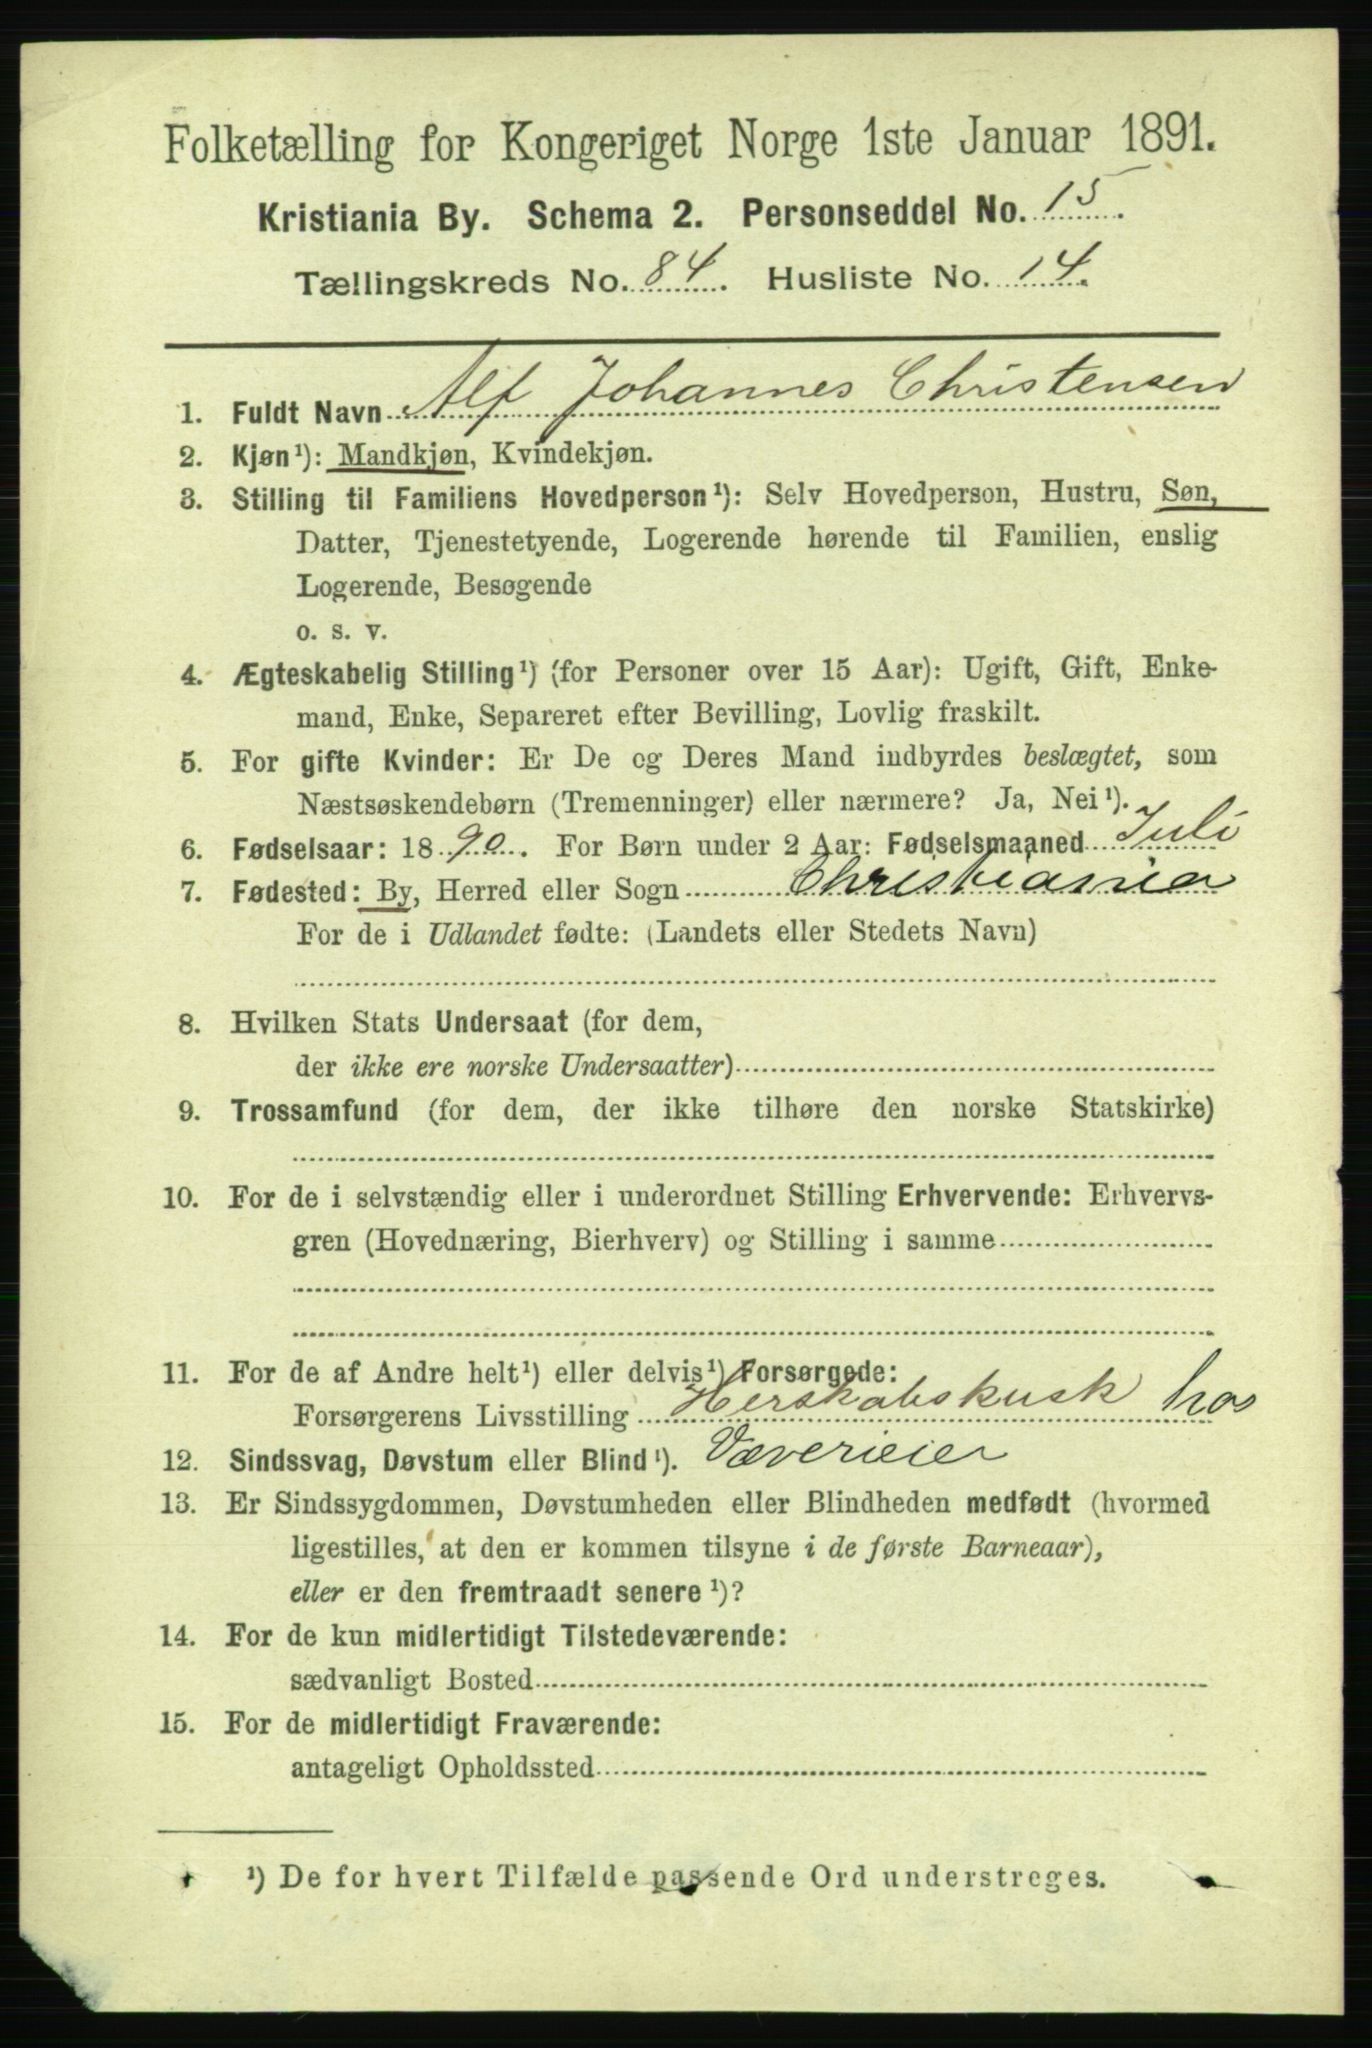 Folketælling for Kongeriget Norge 1ste Januar 1891.
Kristiania By. Schema 2. Personseddel No. 15.
Tællingskreds No. 84. Husliste No. 14.
1. Fuldt Navn Alf Johannes Christensen
2. Kjøn¹): Mandkjøn, Kvindekjøn.
3. Stilling til Familiens Hovedperson¹): Selv Hovedperson, Hustru, Søn,
Datter, Tjenestetyende, Logerende hørende til Familien, enslig
Logerende, Besøgende
o. s. v.
4. Ægteskabelig Stilling¹) (for Personer over 15 Aar): Ugift, Gift, Enke-
mand, Enke, Separeret efter Bevilling, Lovlig fraskilt.
5. For gifte Kvinder: Er De og Deres Mand indbyrdes beslægtet, som
Næstsøskendebørn (Tremenninger) eller nærmere? Ja, Nei¹).
6. Fødselsaar: 1890. For Børn under 2 Aar: Fødselsmaaned Juli
7. Fødested: By, Herred eller Sogn Christiania
For de i Udlandet fødte: (Landets eller Stedets Navn)
8. Hvilken Stats Undersaat (for dem,
der ikke ere norske Undersaatter)
9. Trossamfund (for dem, der ikke tilhøre den norske Statskirke)
10. For de i selvstændig eller i underordnet Stilling Erhvervende: Erhvervs-
gren (Hovednæring, Bierhverv) og Stilling i samme
11. For de af Andre helt¹) eller delvis¹) Forsørgede:
Forsørgerens Livsstilling Herskabskusk hos
12. Sindssvag, Døvstum eller Blind¹). Væverieier
13. Er Sindssygdommen, Døvstumheden eller Blindheden medfødt (hvormed
ligestilles, at den er kommen tilsyne i de første Barneaar),
eller er den fremtraadt senere¹)?
14. For de kun midlertidigt Tilstedeværende:
sædvanligt Bosted
15. For de midlertidigt Fraværende:
antageligt Opholdssted
¹) De for hvert Tilfælde passende Ord understreges.